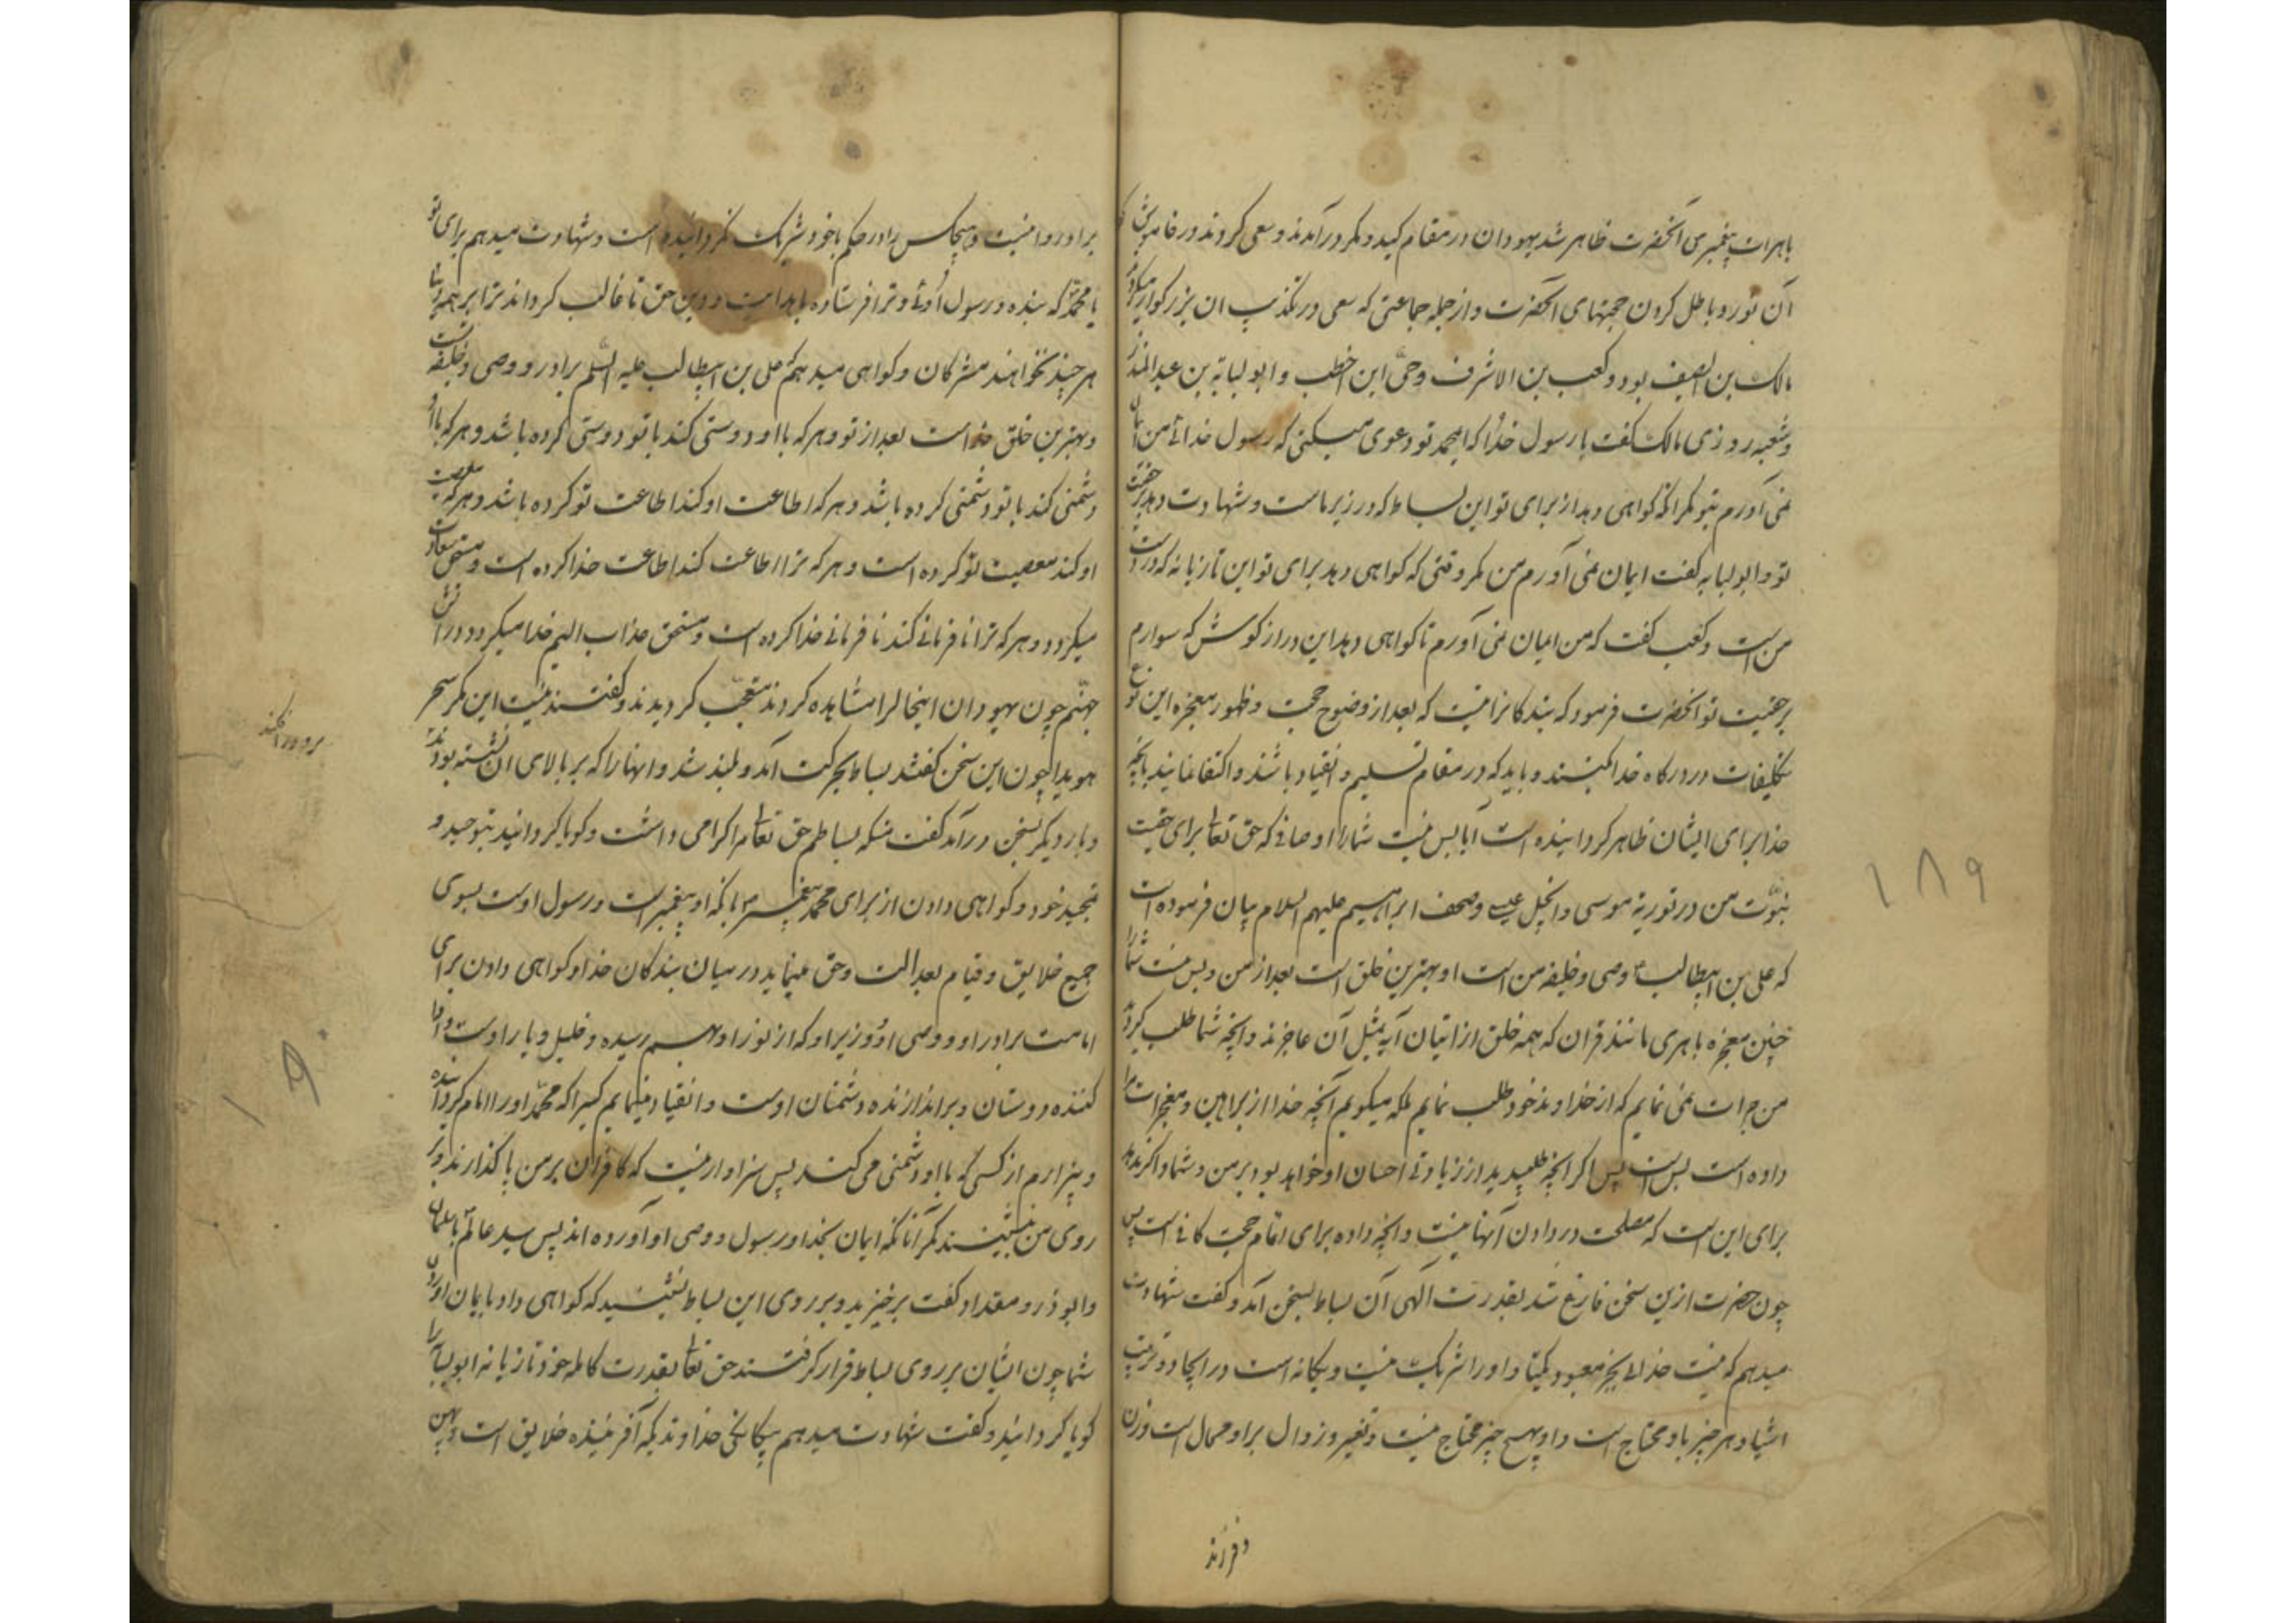 باهرات پیغمبر من آنحضرت ظاهر شد یهودان در مقام کید و مکر درآمدند و سعی کردند در خاموش
آن نور و باطل کردن حجتهای آنحضرت و از جمله جماعتی که سعی در تکذیب ان بزرکوار میکردند
مالک بن الصیف بود و کعب بن الاشرف و حیّ ابن اخطب و ابو لبابة بن عبد المنذر
و شعبه روزی مالک گفت با رسول خدا که ای محمد تو دعوی میکنی که رسول خدائی من ایمان
نمی آورم بتو مکر آنکه کواهی دهد از برای تو این بساط که در زیر ماست و شهادت دهد بر حقیت
تو و ابو لبابه گفت ایمان نمی آورم من مکر وقتی که کواهی دهد برای تو این تازیانه که در دست
من است و کعب گفت که من ایمان نمی آورم تا کواهی دهد این دراز کوش که سوارم
بر حقیت تو انحضرت فرمود که بندکانرا نیست که بعد از وضوح حجت و ظهور معجزه این نوع
تکلیفات در درکاه خدا کنند و باید که در مقام تسلیم و انقیاد باشند و اکتفا نمایند بآنچه
خدا برای ایشان ظاهر کردانیده است آیا بس نیست شما را اوصافی که حق تعالی برای حقیت
نبوّت من در توریة موسی و انجیل عیسی و صحف ابراهیم علیهم السلام بیان فرموده است
که علی بن ابیطالب وصی و خلیفه من است او بهترین خلق است بعد از من و بس نیست شما را
چنین معجزه باهری مانند قران که همه خلق از اتیان آیه بمثل آن عاجزند و آنچه شما طلب کردید
من جرات نمی نمایم که از خداوند خود طلب نمایم بلکه میکویم آنچه خدا از براهین و معجزات مرا
داده است بس است پس اکر آنچه طلبیدید از زیادتی احسان او خواهد بود بر من و شما و اکر ندهد
برای این است که مصلحت در دادن آنها نیست و آنچه داده برای اتمام حجت کافی است پس
چون حضرت ازین سخن فارغ شد بقدرت آلهی آن بساط بسخن آمد و گفت شهادت
میدهم که نیست خدائی بجز معبود یکتا و او را شریک نیست و یکانه است در ایجاد و ترتیب
اشیا و هر چیز باو محتاج است و او بهیچ چیز محتاج نیست و تغییر و زوال بر او محال است و زن
و فرزند
۱۸۹
بر او روا نیست و هیچکس را در حکم با خود شریک نکردانیده است و شهادت میدهم برای تو
یا محمّد که بنده و رسول اوئی و ترا فرستاده با هدایت و دین حق تا غالب کرداند ترا بر همه دینها
هر چند نخواهند مشرکان و کواهی میدهم که علی بن ابیطالب علیه السّلم برادر و وصی و خلیفه تست
و بهترین خلق خداست بعد از تو و هر که با او دوستی کند با تو دوستی کرده باشد و هر که با او
دشمنی کند با تو دشمنی کرده باشد و هر که اطاعت او کند اطاعت تو کرده باشد و هر که معصیت
او کند معصیت تو کرده است و هر که ترا اطاعت کند اطاعت خدا کرده است و مستحق سعادت
میکردد و هر که ترا نافرمانی کند نافرمانی خدا کرده است و مستحق عذاب الیم خدا میکردد در آتش
جهنّم چون یهودان اینحال را مشاهده کردند متعجّب کردیدند و گفتند نیست این مکر سحر
هویدا چون این سخن گفتند بساط بحرکت آمد و بلند شد و انها را که بر بالای ان نشسته بودند
و بار دیکر بسخن درآمد گفت منکه بساطم حق تعالی مرا کرامی داشت و کویا کردانید بتوحید و
تمجید خود و کواهی دادن از برای محمد پیغمبر بآنکه او پیغمبر است و رسول اوست بسوی
جمیع خلایق و قیام بعدالت و حق مینماید در میان بندکان خدا و کواهی دادن برای
امامت برادر او و وصی او و وزیر او که از نور او بهم رسیده و خلیل و یار اوست و ادا
کننده دوستان و براندازنده دشمنان اوست و انقیاد مینمایم کسیرا که محمّد او را امام کردانیده
و بیزارم از کسی که با او دشمنی می کند پس سزاوار نیست که کافران بر من پا گذارند و بر
روی من بنشینند مکر آنانکه ایمان بخدا و رسول و وصی او آورده اند پس سید عالم با سلمان
و ابو ذر و مقداد گفت برخیزید و بر روی این بساط بنشینید که کواهی داد بایمان آوردن
شما چون ایشان بر روی بساط قرار کرفتند حق تعالی بقدرت کامله خود تازیانه ابو لبابه را
کویا کردانید و گفت شهادت میدهم بیکانکی خداوندیکه آفریننده خلایق است و پهن